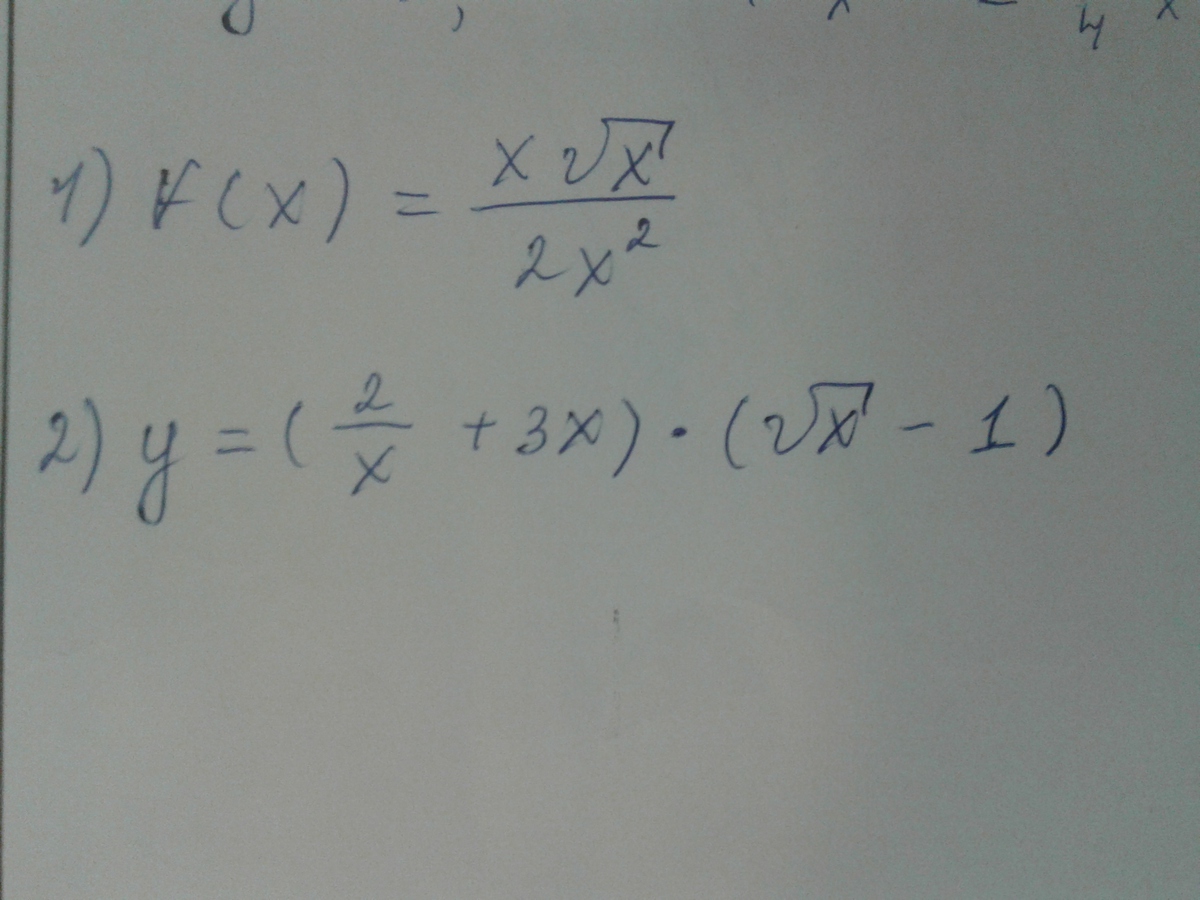 1) f(x) = x√x / 2x²
2) y = (2/x + 3x) · (√x - 1)